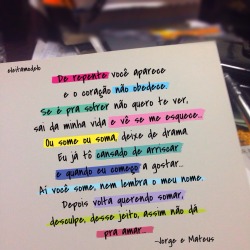 eleitamodelo
De repente você aparece
e o coração não obedece.
Se é pra sofrer não quero te ver,
sai da minha vida e vê se me esquece...
Ou some ou soma, deixe de drama
Eu já tô cansado de arriscar
e quando eu começo a gostar...
Aí você some, nem lembra o meu nome.
Depois volta querendo somar,
desculpe, desse jeito, assim não dá
pra amar.
-Jorge e Mateus